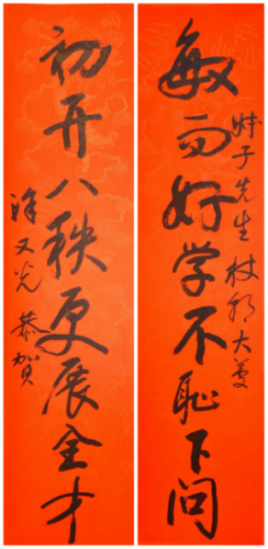 敏而好学不恥下问
子先生 杖朝大慶
初开八秩更展全才
涂又光 恭贺